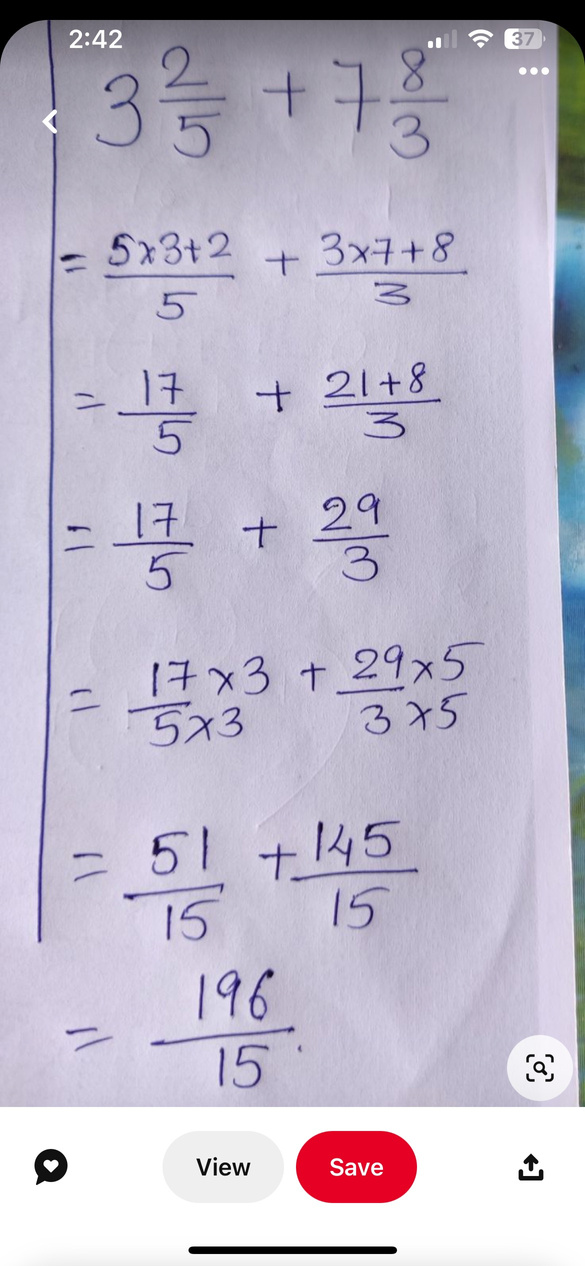 2:42
37
3 2/5 + 7 8/3
= 5x3+2/5 + 3x7+8/3
= 17/5 + 21+8/3
= 17/5 + 29/3
= 17x3/5x3 + 29x5/3x5
= 51/15 + 145/15
= 196/15.
View
Save